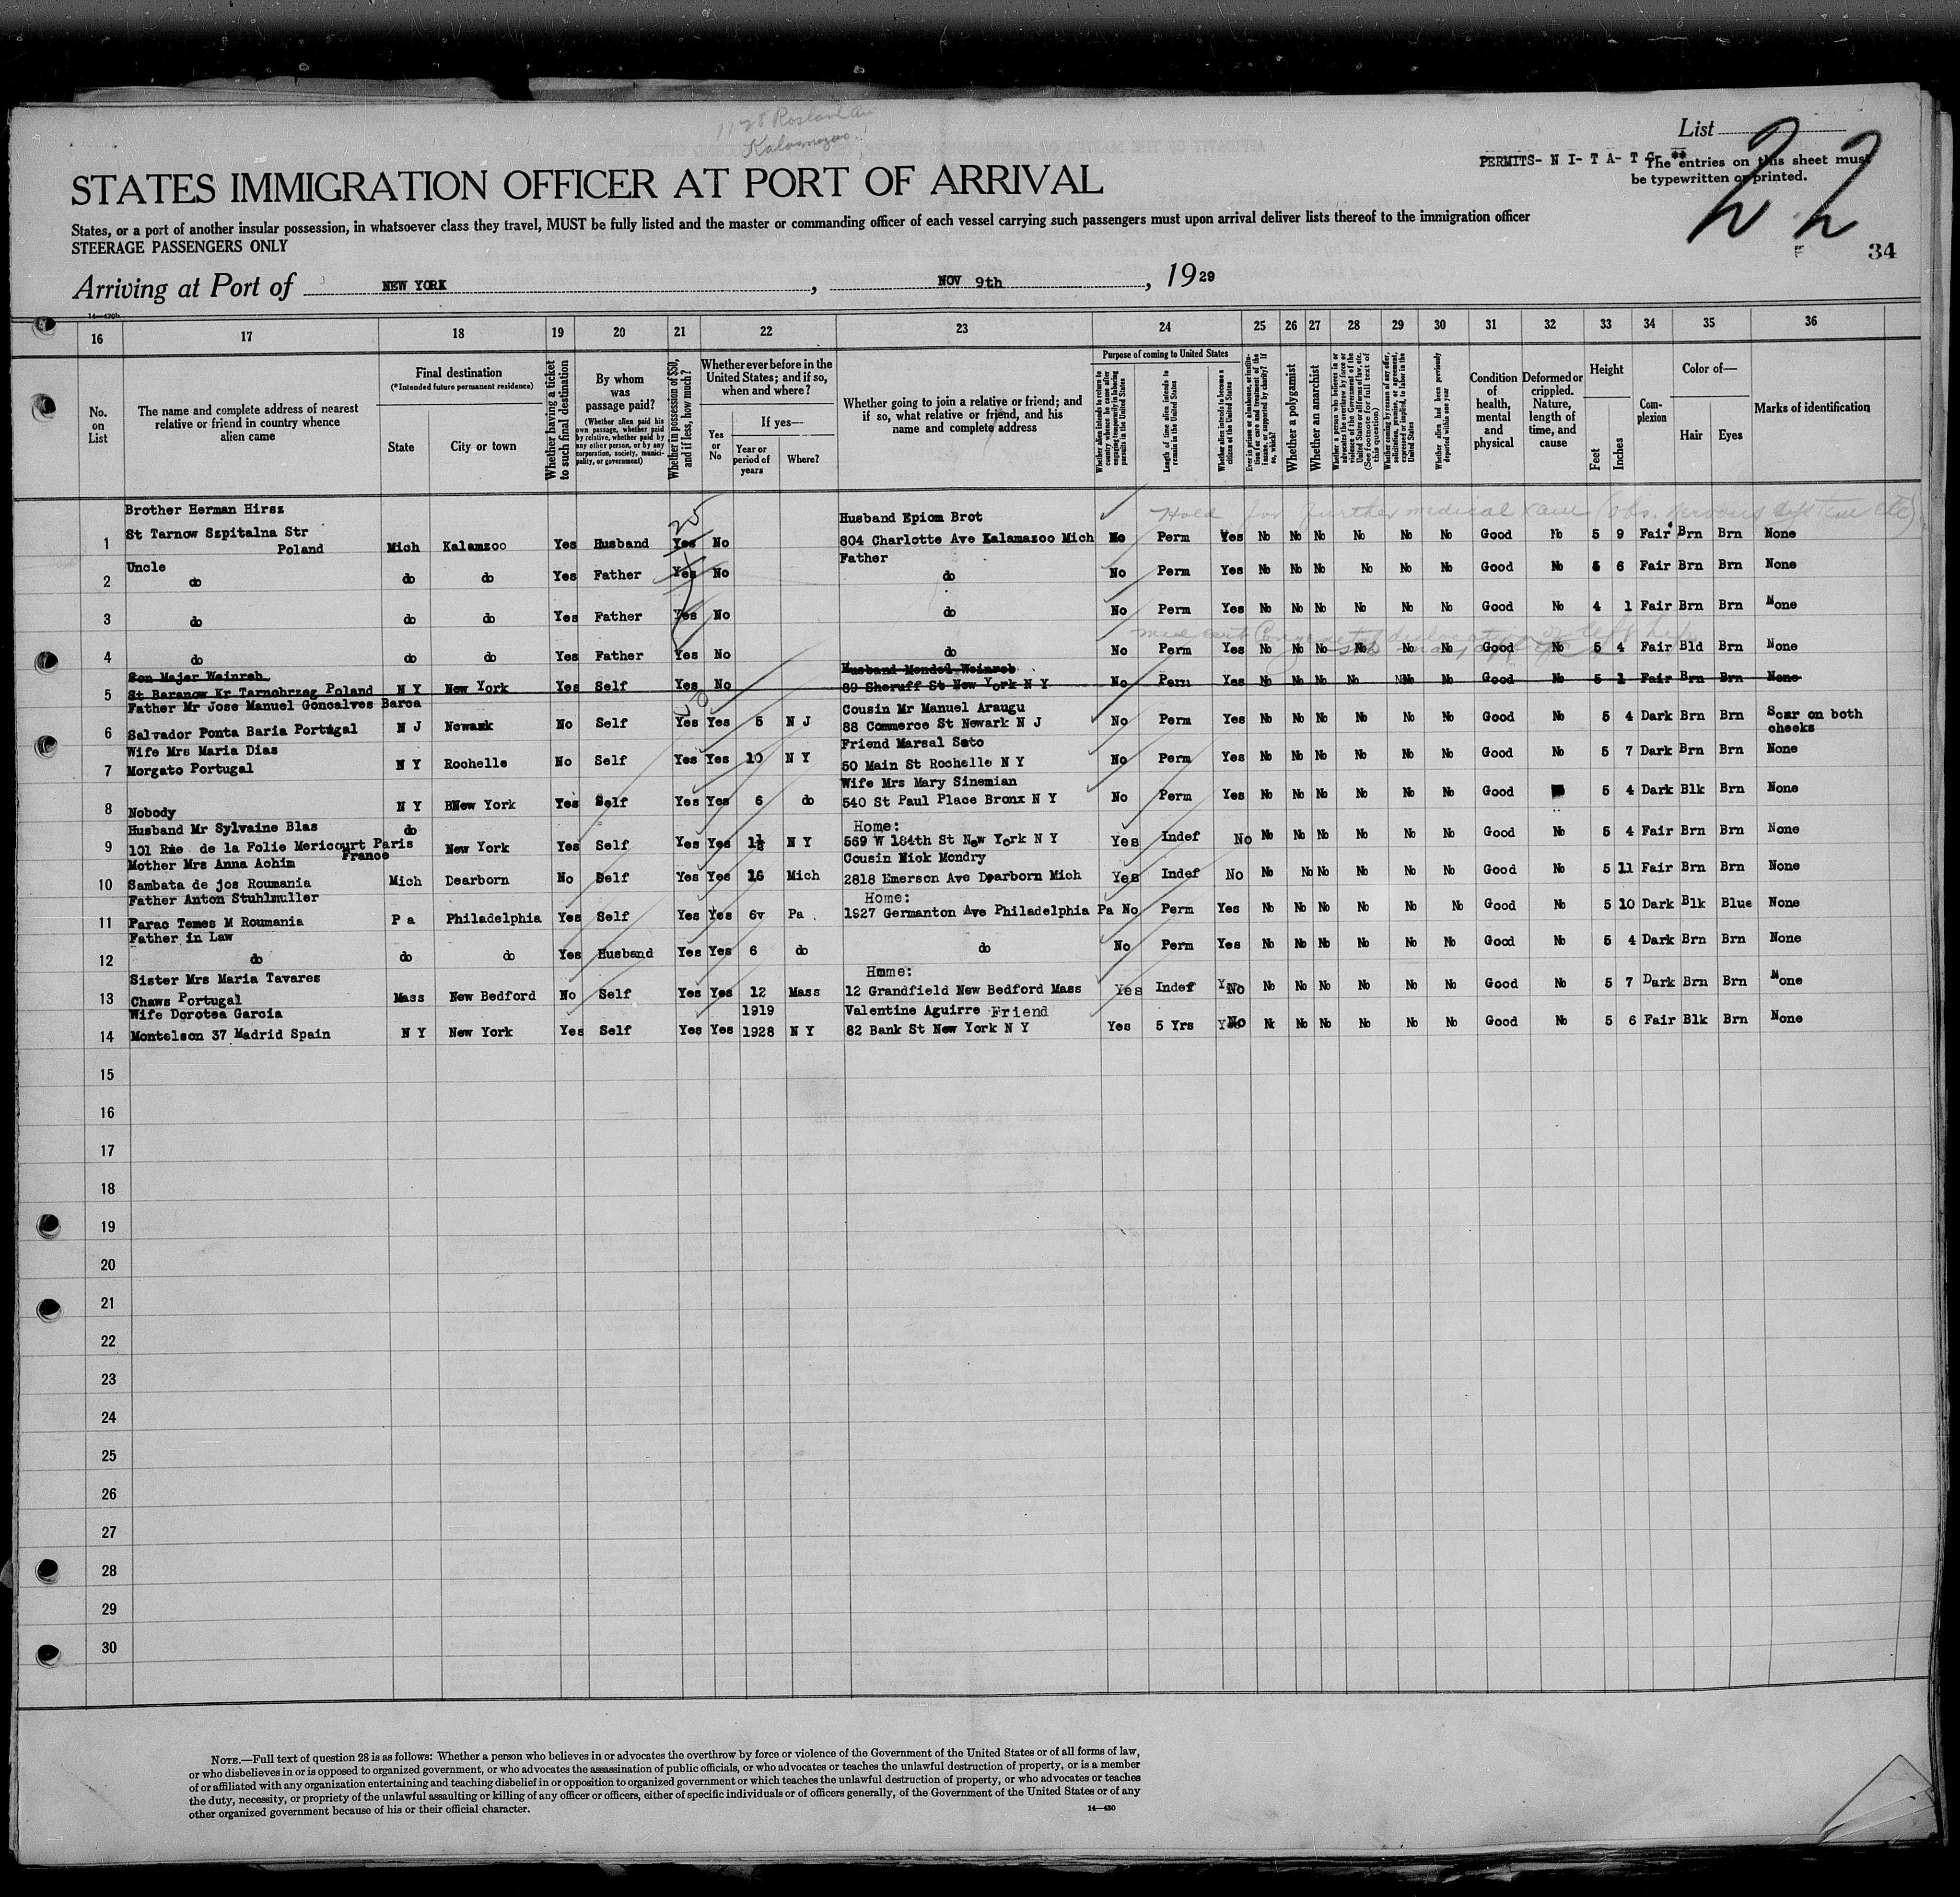 1128 Rosland Av
Kalamazoo
List
22
PERMITS- N I- T A- T C- **
The entries on this sheet must
be typewritten or printed.
STATES IMMIGRATION OFFICER AT PORT OF ARRIVAL
States, or a port of another insular possession, in whatsoever class they travel, MUST be fully listed and the master or commanding officer of each vessel carrying such passengers must upon arrival deliver lists thereof to the immigration officer
STEERAGE PASSENGERS ONLY
F
34
Arriving at Port of NEW YORK, NOV 9th, 1929
14—430b
16 17 18 19 20 21 22 23 24 25 26 27 28 29 30 31 32 33 34 35 36
No. on List
The name and complete address of nearest relative or friend in country whence alien came
Final destination
(*Intended future permanent residence)
State
City or town
Whether having a ticket to such final destination
By whom was passage paid?
(Whether alien paid his own passage, whether paid by relative, whether paid by any other person, or by any corporation, society, municipality, or government)
Whether in possession of $50, and if less, how much?
Whether ever before in the United States; and if so, when and where?
Yes or No
If yes—
Year or period of years
Where?
Whether going to join a relative or friend; and if so, what relative or friend, and his name and complete address
Purpose of coming to United States
Whether alien intends to return to country whence he came after engaging temporarily in laboring pursuits in the United States
Length of time alien intends to remain in the United States
Whether alien intends to become a citizen of the United States
Ever in prison or almshouse, or institution for care and treatment of the insane, or supported by charity? If so, which?
Whether a polygamist
Whether an anarchist
Whether a person who believes in or advocates the overthrow by force or violence of the Government of the United States or all forms of law, etc. (See footnote for full text of this question.)
Whether coming by reason of any offer, solicitation, promise, or agreement, expressed or implied, to labor in the United States
Whether alien had been previously deported within one year
Condition of health, mental and physical
Deformed or crippled. Nature, length of time, and cause
Height
Feet
Inches
Complexion
Color of—
Hair
Eyes
Marks of identification
Hold for further medical exam (obs. nervous system etc)
25
Brother Herman Hirsz Husband Epiom Brot
1 St Tarnow Szpitalna Str Poland Mich Kalamzoo Yes Husband Yes No 804 Charlotte Ave Kalamazoo Mich No Perm Yes No No No No No No Good No 5 9 Fair Brn Brn None
Uncle Father
2 do do do Yes Father Yes No do No Perm Yes No No No No No No Good No 5 6 Fair Brn Brn None
3 do do do Yes Father Yes No do No Perm Yes No No No No No No Good No 4 1 Fair Brn Brn None
med cert Congenital dislocation of left hip
4 do do do Yes Father Yes No do No Perm Yes No No No No No No Good No 5 4 Fair Bld Brn None
Son Majer Weinreb Husband Mendel Weinreb
5 St Baranow Kr Tarnobrzeg Poland N Y New York Yes Self Yes No 89 Sheruff St New York N Y No Perm Yes No No No No No No Good No 5 1 Fair Brn Brn None
Father Mr Jose Manuel Goncalves Barca Cousin Mr Manuel Araugu
6 Salvador Ponta Baria Portugal N J Newark No Self Yes Yes 5 N J 88 Commerce St Newark N J No Perm Yes No No No No No No Good No 5 4 Dark Brn Brn Scar on both cheeks
Wife Mrs Maria Dias Friend Marsal Soto
7 Morgato Portugal N Y Rochelle No Self Yes Yes 10 N Y 50 Main St Rochelle N Y No Perm Yes No No No No No No Good No 5 7 Dark Brn Brn None
Wife Mrs Mary Sinemian
8 Nobody N Y New York Yes Self Yes Yes 6 do 540 St Paul Place Bronx N Y No Perm Yes No No No No No No Good 5 4 Dark Blk Brn None
Husband Mr Sylvaine Blas do Home:
9 101 Rue de la Folie Mericourt Paris France New York Yes Self Yes Yes 1½ N Y 569 W 184th St New York N Y Yes Indef No No No No No No No Good No 5 4 Fair Brn Brn None
Mother Mrs Anna Achim Cousin Nick Mondry
10 Sambata de jos Roumania Mich Dearborn No Self Yes Yes 16 Mich 2818 Emerson Ave Dearborn Mich Yes Indef No No No No No No No Good No 5 11 Fair Brn Brn None
Father Anton Stuhlmuller Home:
11 Parac Temes M Roumania P a Philadelphia Yes Self Yes Yes 6v Pa 1927 Germanton Ave Philadelphia Pa No Perm Yes No No No No No No Good No 5 10 Dark Blk Blue None
Father in Law
12 do do do Yes Husband Yes Yes 6 do do No Perm Yes No No No No No No Good No 5 4 Dark Brn Brn None
Sister Mrs Maria Tavares Home:
13 Chaws Portugal Mass New Bedford No Self Yes Yes 12 Mass 12 Grandfield New Bedford Mass Yes Indef No No No No No No No Good No 5 7 Dark Brn Brn None
Wife Dorotea Garcia 1919 Valentine Aguirre Friend
14 Montelson 37 Madrid Spain N Y New York Yes Self Yes Yes 1928 N Y 82 Bank St New York N Y Yes 5 Yrs No No No No No No No Good No 5 6 Fair Blk Brn None
15
16
17
18
19
20
21
22
23
24
25
26
27
28
29
30
NOTE.—Full text of question 28 is as follows: Whether a person who believes in or advocates the overthrow by force or violence of the Government of the United States or of all forms of law,
or who disbelieves in or is opposed to organized government, or who advocates the assassination of public officials, or who advocates or teaches the unlawful destruction of property, or is a member
of or affiliated with any organization entertaining and teaching disbelief in or opposition to organized government or which teaches the unlawful destruction of property, or who advocates or teaches
the duty, necessity, or propriety of the unlawful assaulting or killing of any officer or officers, either of specific individuals or of officers generally, of the Government of the United States or of any
other organized government because of his or their official character.
14—430